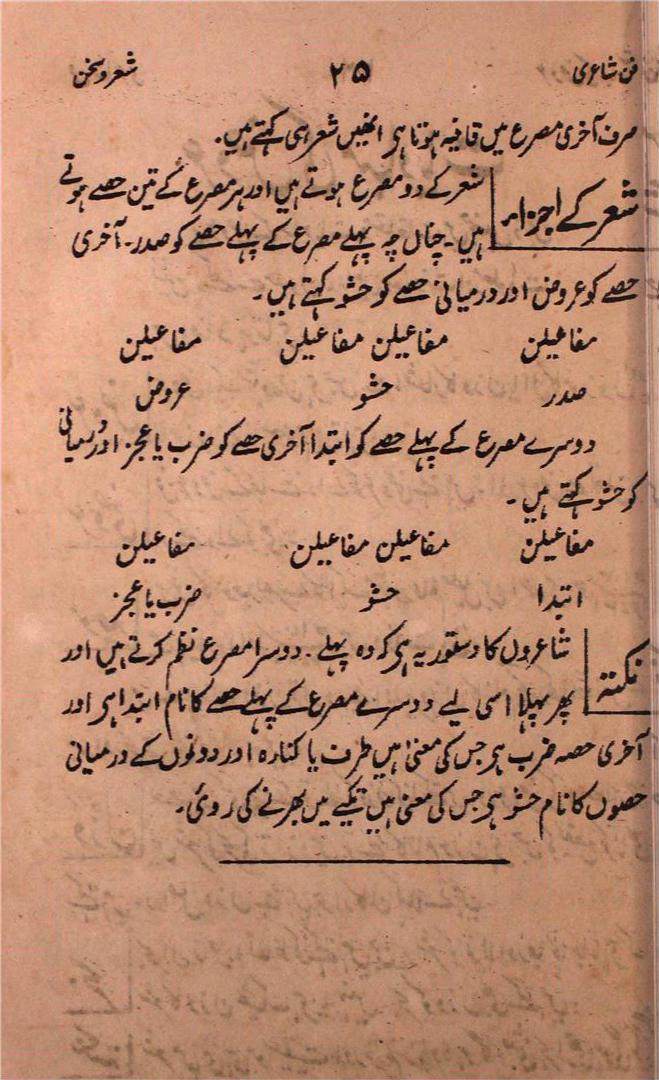 فن شاعری ۲۵ شعر و سخن
صرف آخری مصرع میں قافیہ ہوتا ہی انھیں شعر ہی کہتے ہیں۔
شعر کے اجزاء۔ شعر کے دو مصرع ہوتے ہیں اور ہر مصرع کے تین حصے ہوتے
ہیں۔ چناں چہ پہلے مصرع کے پہلے حصے کو صدر۔ آخری
حصے کو عروض اور درمیانی حصے کو حشو کہتے ہیں۔
مفاعیلن مفاعیلن مفاعیلن مفاعیلن
صدر حشو عروض
دوسرے مصرع کے پہلے حصے کو ابتدا آخری حصے کو ضرب یا عجز اور درمیانی
کو حشو کہتے ہیں۔
مفاعیلن مفاعیلن مفاعیلن مفاعیلن
ابتدا حشو ضرب یا عجز
نکتہ شاعروں کا دستور یہ ہی کہ وہ پہلے۔ دوسرا مصرع نظم کرتے ہیں اور
پھر پہلا اسی لیے دوسرے مصرع کے پہلے حصے کا نام ابتدا ہی اور
آخری حصہ ضرب ہی جس کی معنیٰ ہیں طرف یا کنارہ اور دونوں کے درمیانی
حصوں کا نام حشو ہی جس کی معنیٰ ہیں تکیے میں بھرنے کی روئی۔